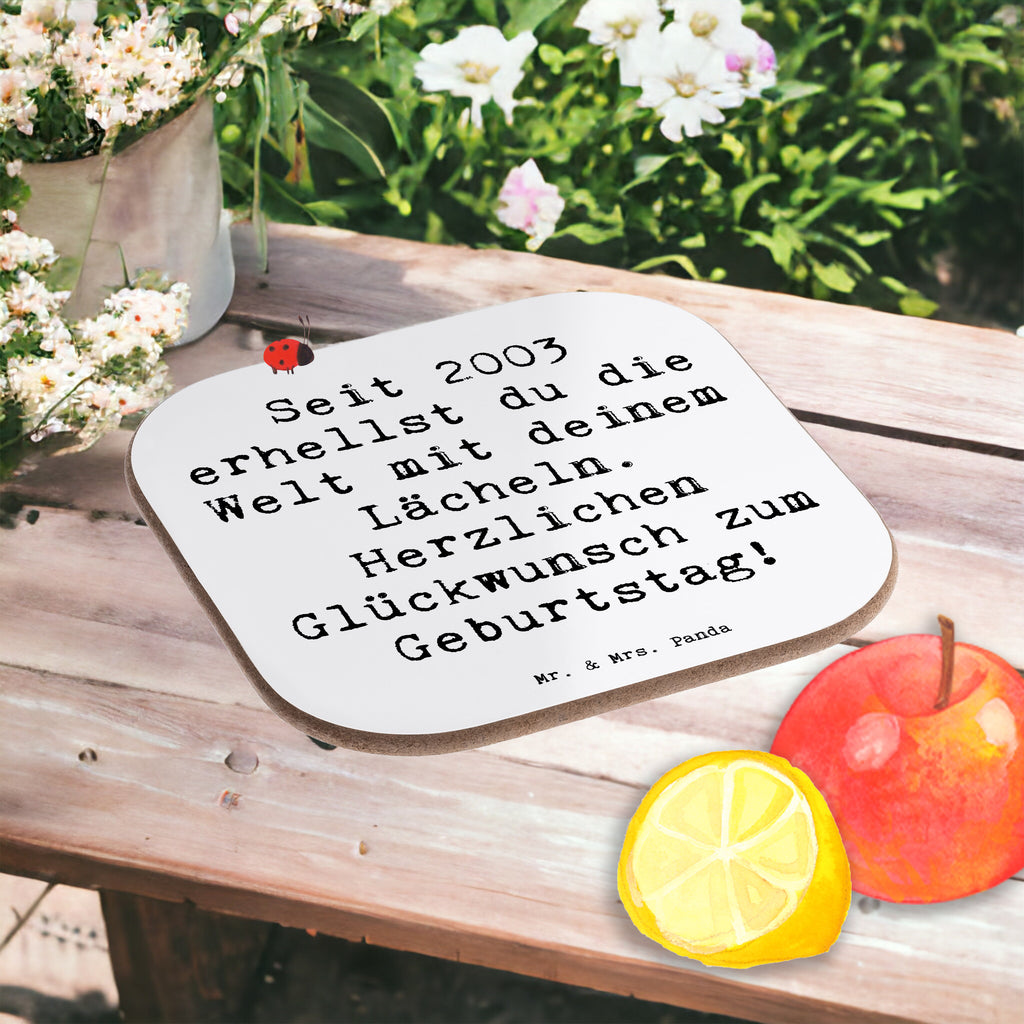 Seit 2003
erhellst du die
Welt mit deinem
Lächeln.
Herzlichen
Glückwunsch zum
Geburtstag!
Mr. & Mrs. Panda